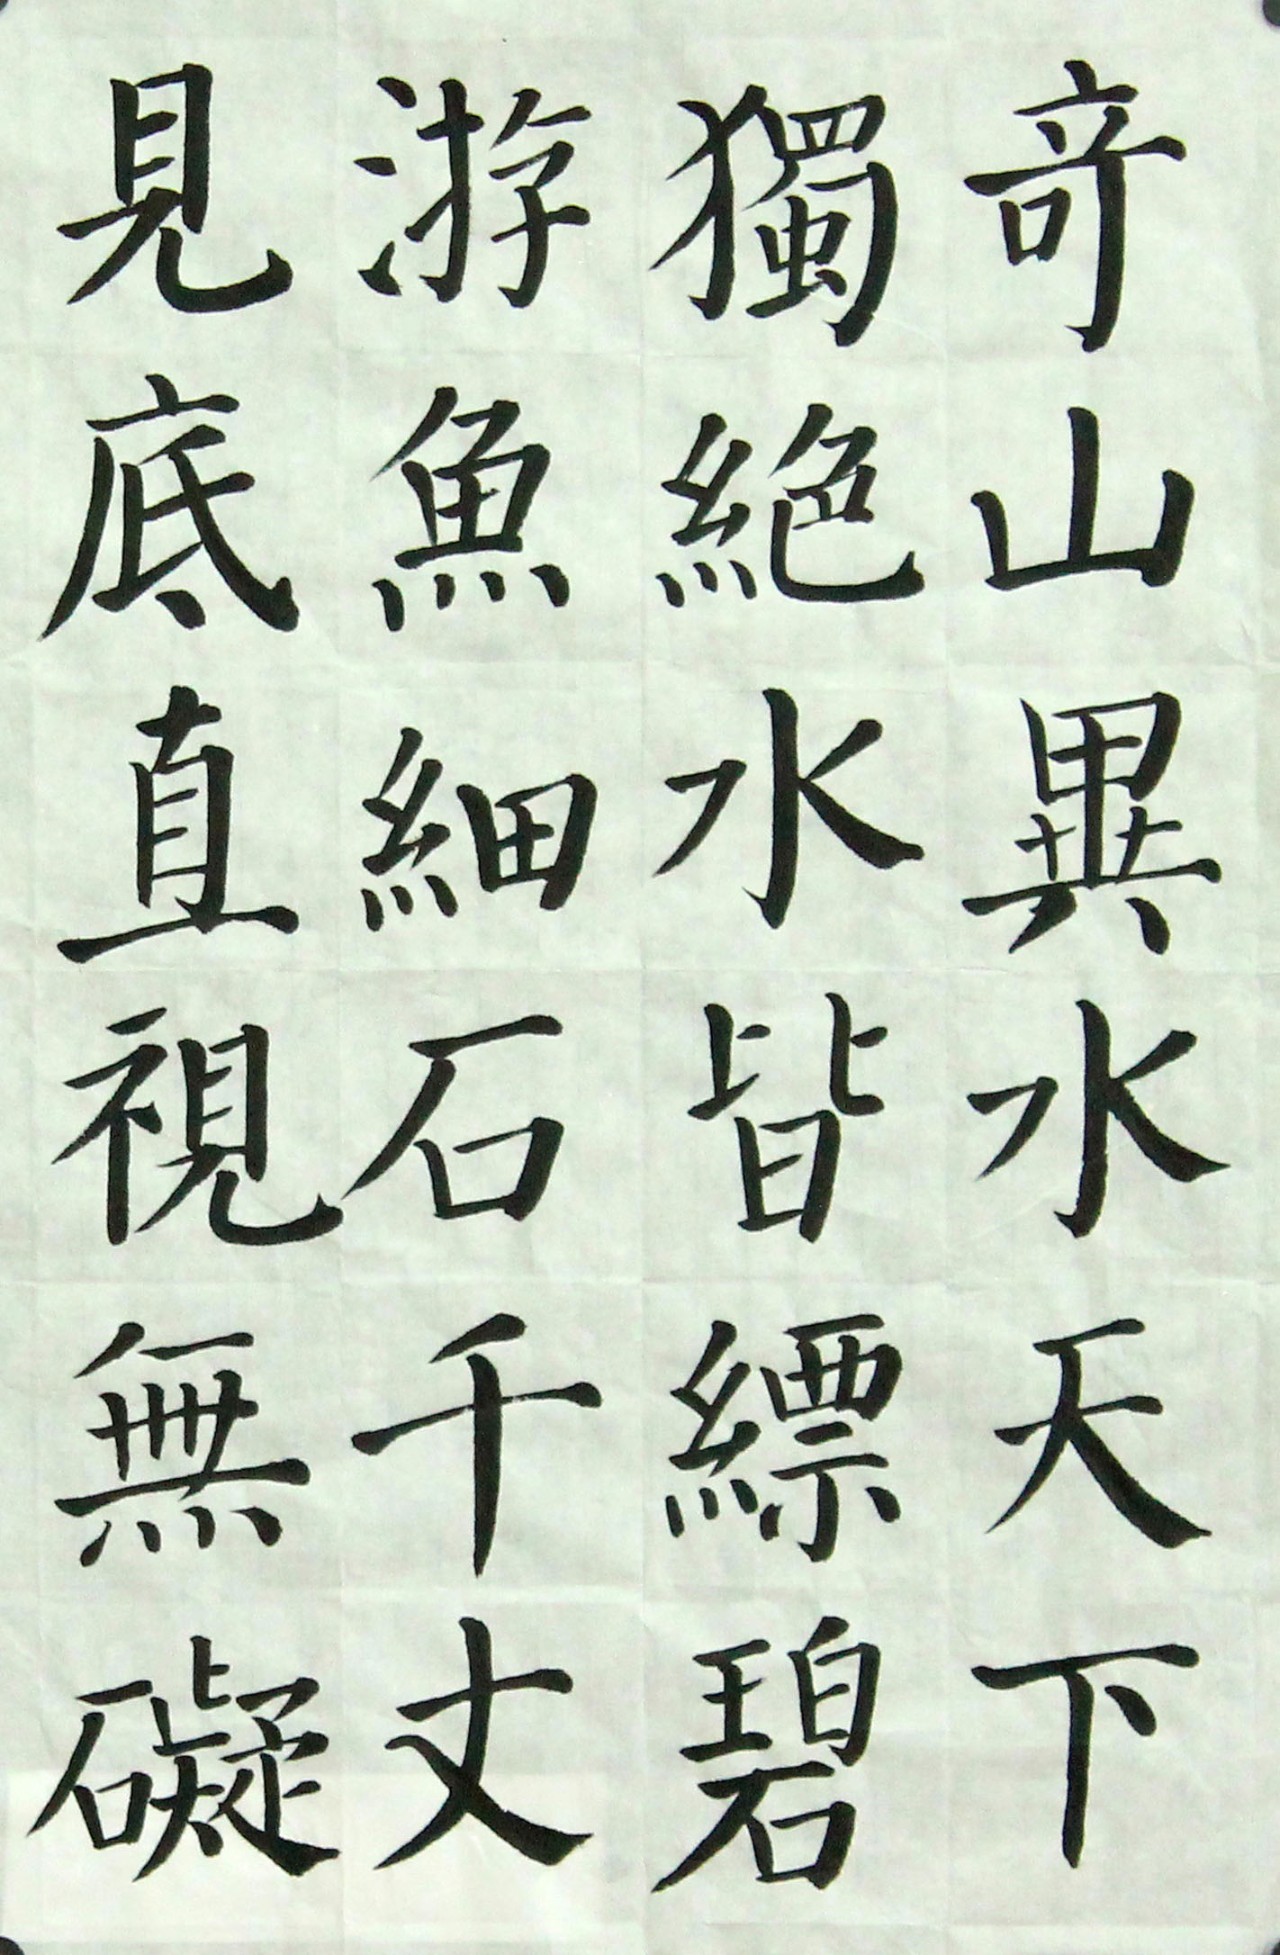 奇山異水天下
獨絕水皆縹碧
游魚細石千丈
見底直視無礙